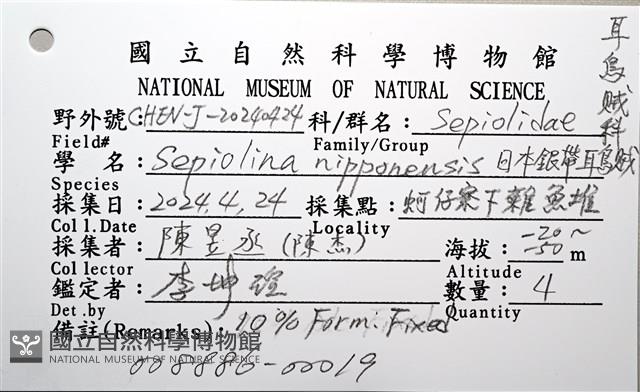 國立自然科學博物館
NATIONAL MUSEUM OF NATURAL SCIENCE
耳烏賊科
野外號:CHEN-J-20240424 科/群名:Sepiolidae
Field# Family/Group
學 名:Sepiolina nipponensis 日本銀帶耳烏賊
Species
採集日:2024.4.24 採集點:蚵仔寮下雜魚堆
Coll.Date Locality
採集者:陳昱丞(陳杰) 海拔:-20~-50 m
Collector Altitude
鑑定者:李坤瑄 數量:4
Det.by Quantity
備註(Remarks):10% Form: Fixed
國立自然科學博物館
NATIONAL MUSEUM OF NATURAL SCIENCE
008880-00019